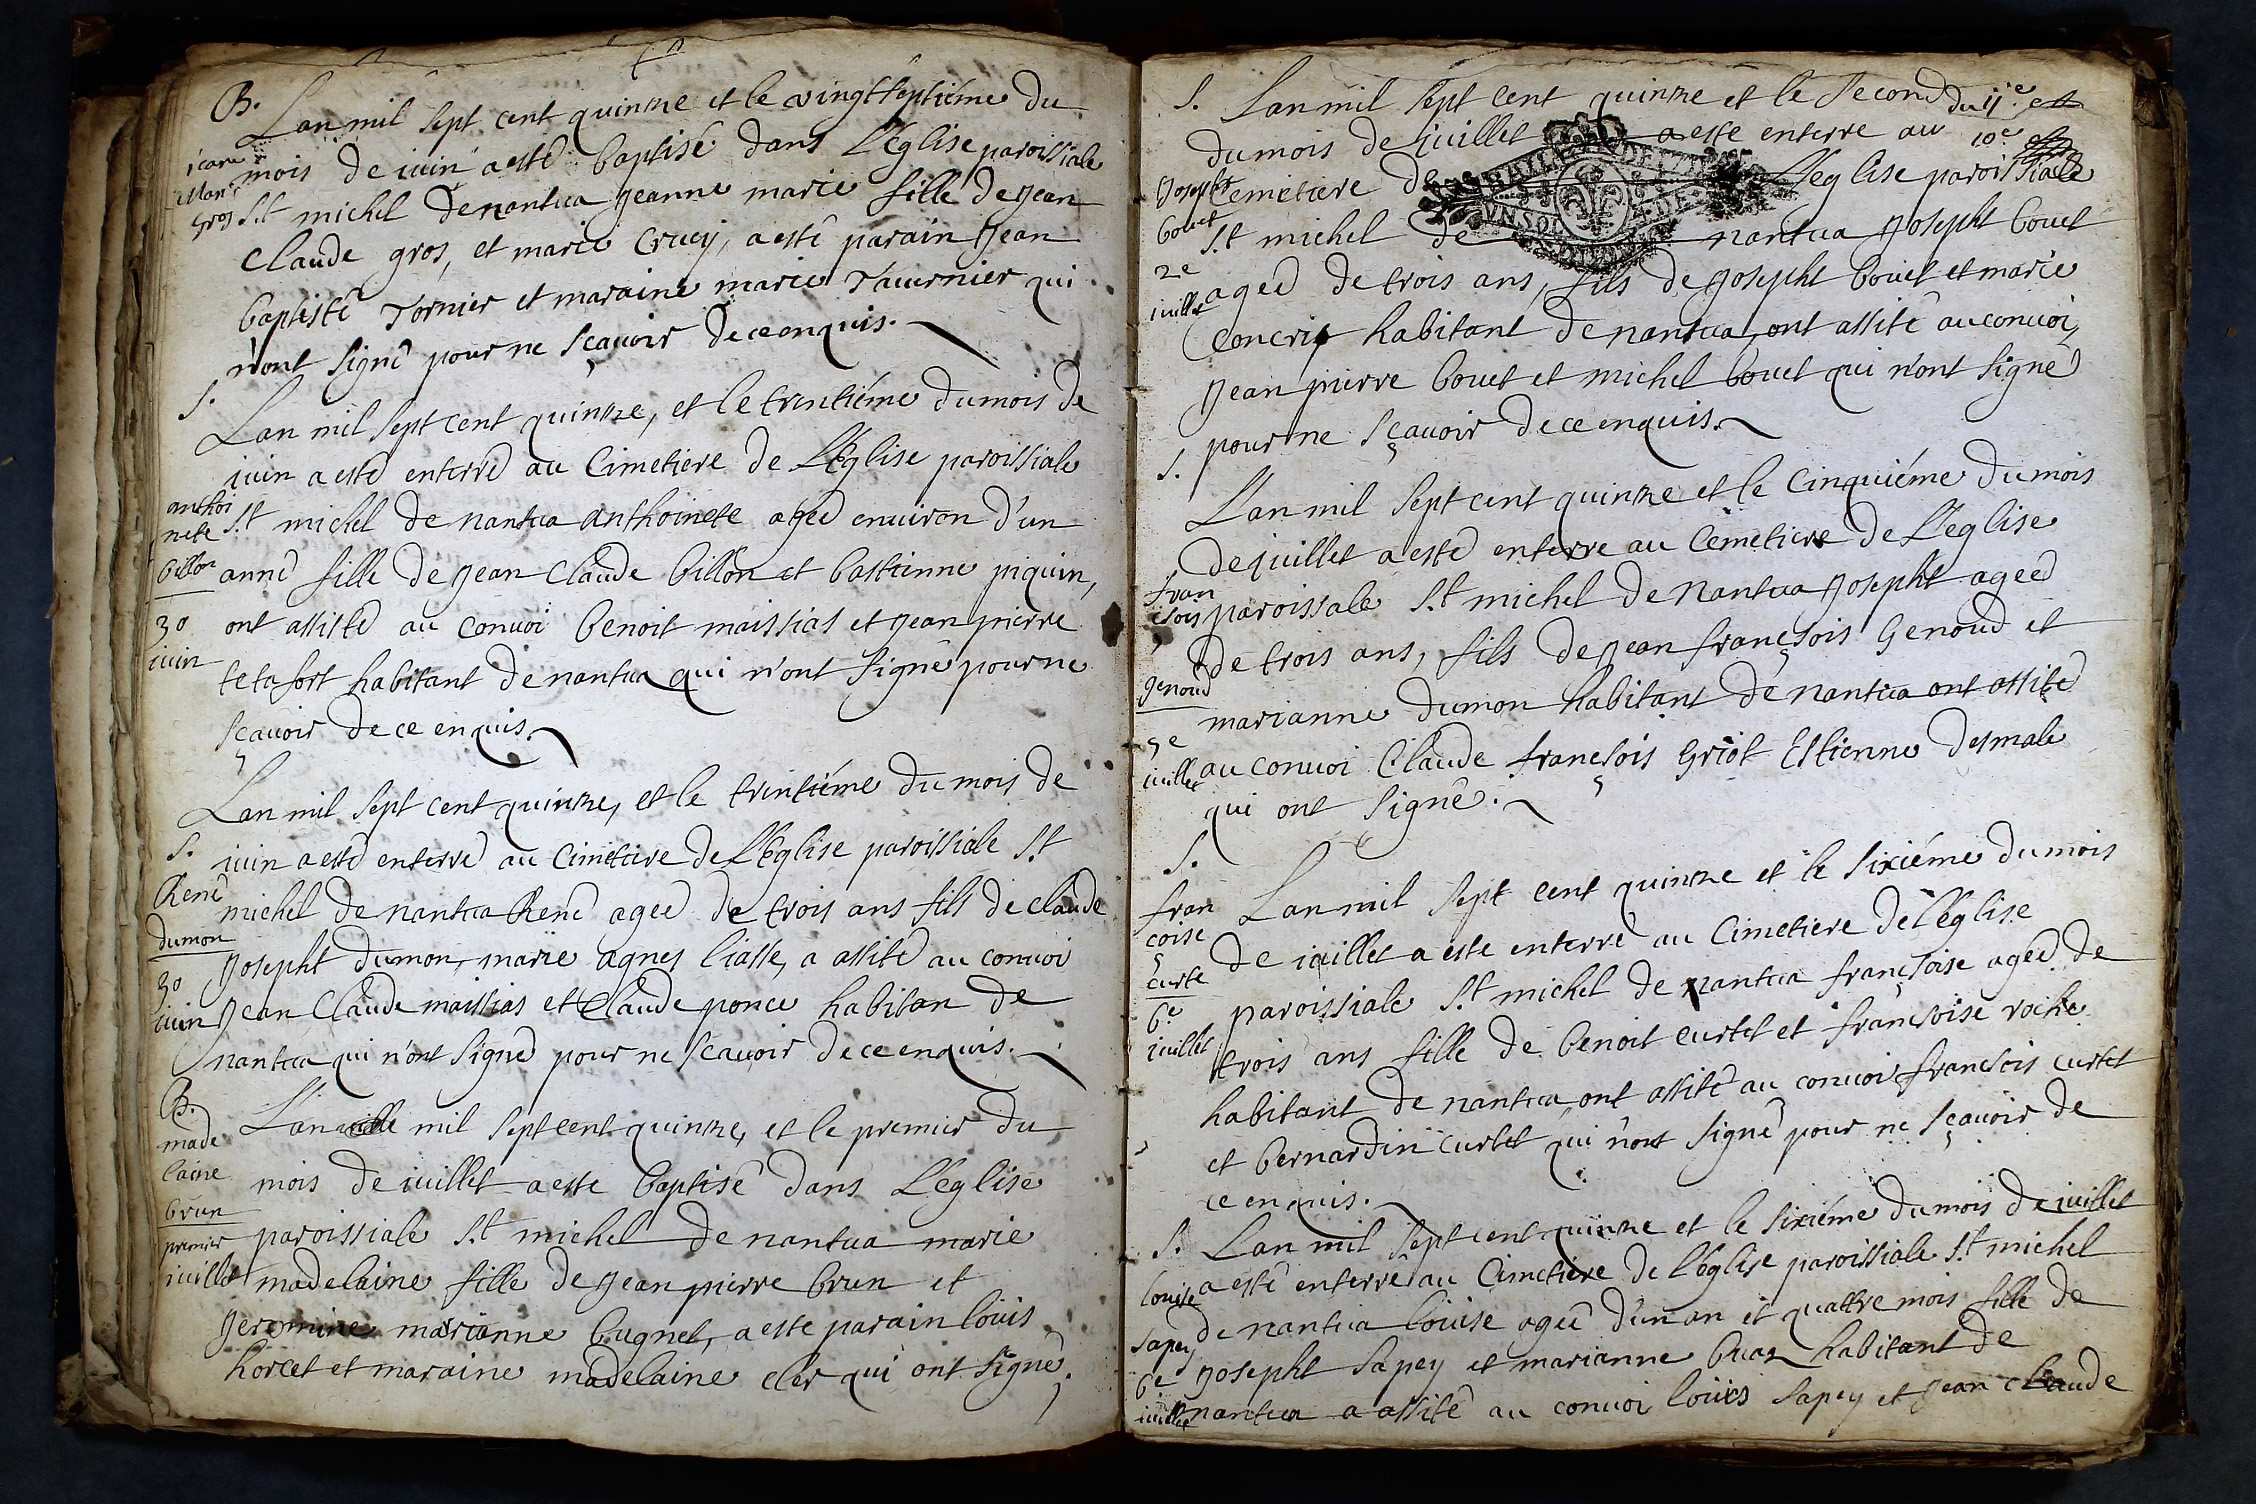 B.
Lan mil sept cent quinze et le vingtseptiéme du
jean
Marie
gros
mois de iuin a esté baptisé dans L'Eglise paroissiale
S.t michel de nantua jeanne marie fille de jean
Claude gros, et marie Crucy, a esté parain jean
baptiste Tornier et maraine marie Tavernier qui
n'ont signé pour ne sçavoir de ce enquis.
S.
Lan mil sept cent quinze, et le trentiéme du mois de
iuin a esté enterré au Cimetiere de L'Eglise paroissiale
anthoi
nete
billon
30
iuin
S.t michel de nantua anthoinete agée environ d'un
anné fille de jean Claude billon et bastienne piquin,
ont assisté au convoi benoit maissias et jean pierre
tetafort habitant de nantua qui n'ont signé pour ne
sçavoir de ce enquis.
Lan mil sept cent quinze, et le trintiéme du mois de
S.
René
dumon
30
iuin
iuin a esté enterré au Cimetiere de L'Eglise paroissiale S.t
michel de nantua René agée de trois ans fils de claude
josepht dumon, marie agnes liasse, a assité au convoi
jean Claude maissias et Claude ponce habitan de
nantua qui n'ont signé pour ne sçavoir de ce enquis.
B.
made
laine
brun
premier
iuillet
Lan mil sept cent quinze, et le premier du
mois de iuillet a este baptisé dans L'eglise
paroissiale S.t michel de nantua marie
madelaine fille de jean pierre brun et
jeromine marianne bugnet, a este parain louis
horcet et maraine madelaine cler qui ont signé.
S.
Lan mil sept cent quinze et le second
du 11e et
10e
du mois de iuillet a esté enterre au
josepht
bouet
2e
iuillet
Cemetiere de L'eglise paroissiale
S.t michel de nantua josepht bouet
ageé de trois ans, fils de josepht bouet et marie
Concrit habitant de nantua, ont assité au convoi,
jean pierre bouet et michel bouet qui n'ont signé
pour ne sçavoir de ce enquis.
S.
L'an mil sept cent quinze et le Cinquiéme du mois
de juillet a esté enterre au Cemetiere de L'eglise
fran
çois
genoud
5e
iuillet
paroissale S.t michel de Nantua josepht ageé
de trois ans, fils de jean françois Genoud et
marianne dumon habitant de nantua ont assité
au convoi Claude françois Griot Estienne desmale
qui ont signé.
S.
fran
çoise
curte
6e
iuillet
Lan mil sept cent quinze et le sixiéme du mois
de iuillet a este enterré au Cimetiere de l'église
paroissiale S.t michel de nantua françoise ageé de
trois ans fille de benoit curtet et françoise roche
habitant de nantua, ont assité au convoi françois curtet
et bernardin curtet qui n'ont signé pour ne sçavoir de
ce enquis.
S.
louise
sapey
6e
iuillet
Lan mil sept cent quinze et le sixiéme du mois de iuillet
a esté enterré au Cimetiere de l'église paroissiale S.t michel
de nantua louise ageé d'un an et quattre mois fille de
josepht sapey et marianne buaz habitant de
nantua a assité au convoi loüis sapey et jean claude